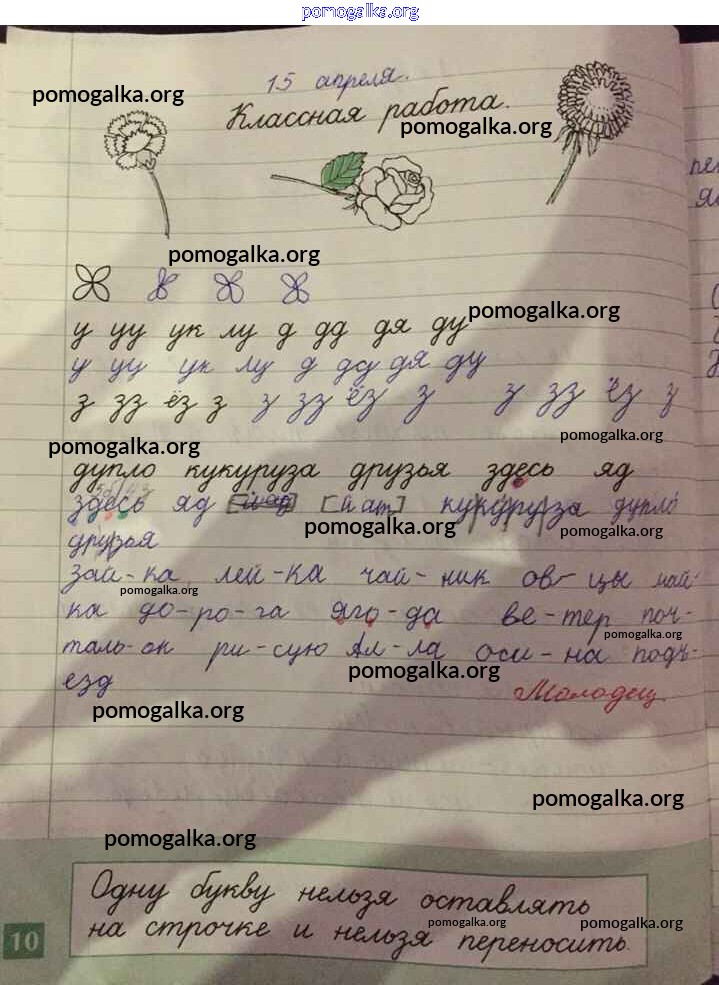 pomogalka.org
15 апреля.
pomogalka.org
Классная работа.
pomogalka.org
pomogalka.org
pomogalka.org
у уу ук лу д дд дя ду
у уу ук лу д дд дя ду
з зз ёз з з зз ёз з з зз ёз з
pomogalka.org
pomogalka.org
дупло кукуруза друзья здесь яд
здесь яд [йат] кукуруза дупло
pomogalka.org
pomogalka.org
друзья
зай-ка лей-ка чай-ник ов-цы май-
pomogalka.org
ка до-ро-га яго-да ве-тер поч-
pomogalka.org
таль-он ри-сую Ал-ла оси-на подъ-
pomogalka.org
езд
Молодец
pomogalka.org
pomogalka.org
pomogalka.org
Одну букву нельзя оставлять
на строчке и нельзя переносить.
pomogalka.org
pomogalka.org
10